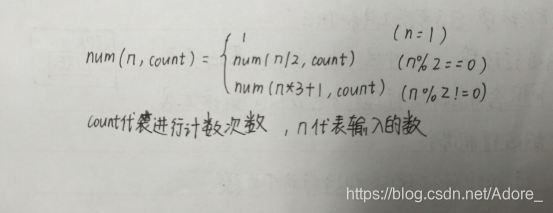 1 (n=1)
num(n,count)= { num(n/2, count) (n%2==0)
num(n*3+1, count) (n%2!=0)
count代表进行计数次数 , n代表输入的数
https://blog.csdn.net/Adore_